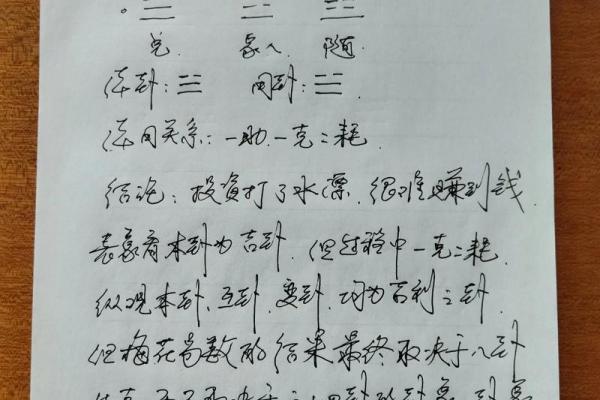 兑 家人 随
体卦： 用卦：
体用关系：一助、一克二耗
结论：投资打了水漂，很难赚到钱。
表象看本卦为吉卦，但过程中一克二耗
纵观本卦、互卦、变卦，均为吉利之卦
但梅花易数的结果最终取决于八卦